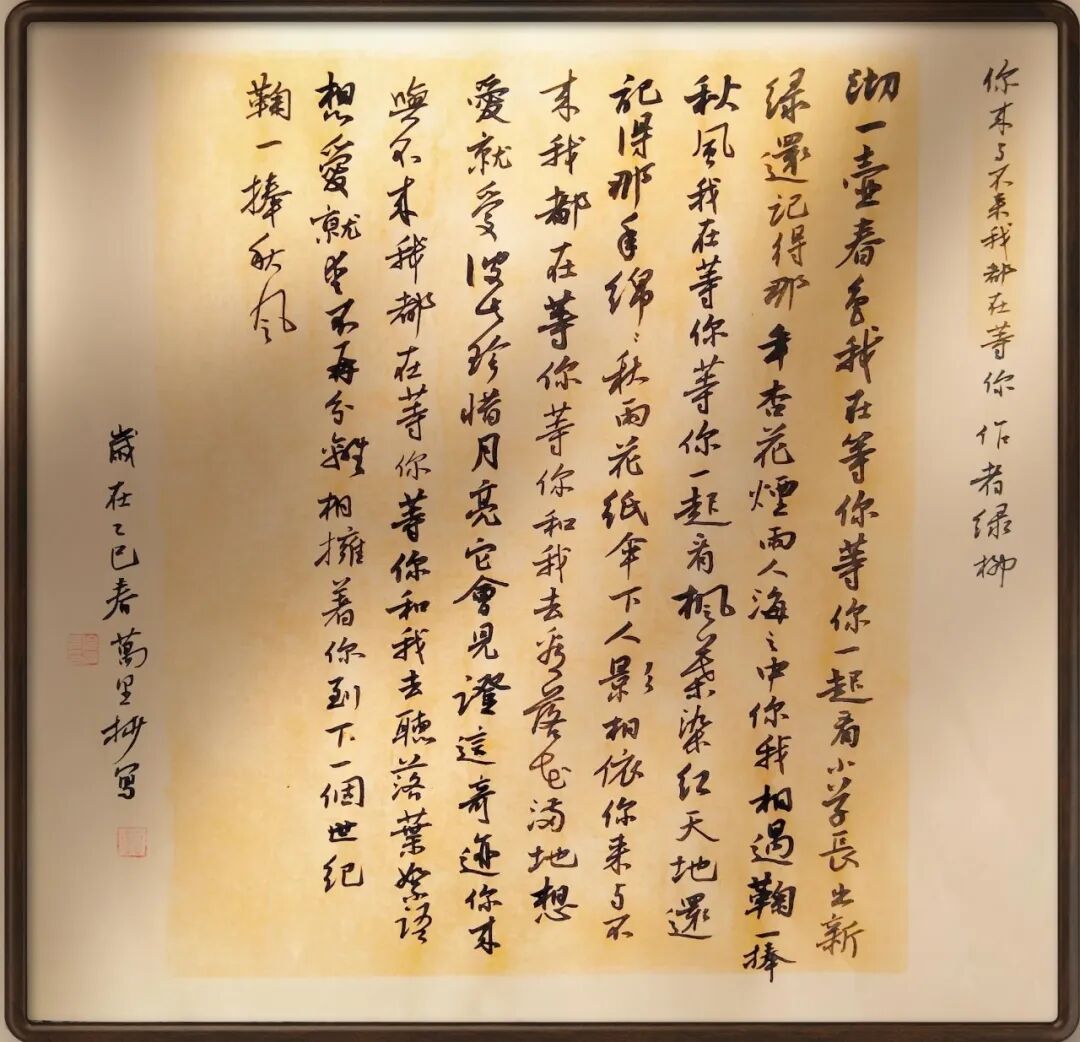 你来与不来我都在等你 作者绿柳
沏一壺春色我在等你等你一起看小草長出新
绿還記得那年杏花煙雨人海之中你我相遇鞠一捧
秋風我在等你等你一起看楓葉染红天地還
記得那年绵绵秋雨花纸伞下人影相依你来与不
来我都在等你等你和我去看落花满地想
愛就爱彼此珍惜月亮它會見證這奇迹你来
與不来我都在等你等你和我去聽落葉絮語
想愛就爱不再分離相擁著你到下一個世纪
鞠一捧秋風
歲在乙巳春萬里抄寫